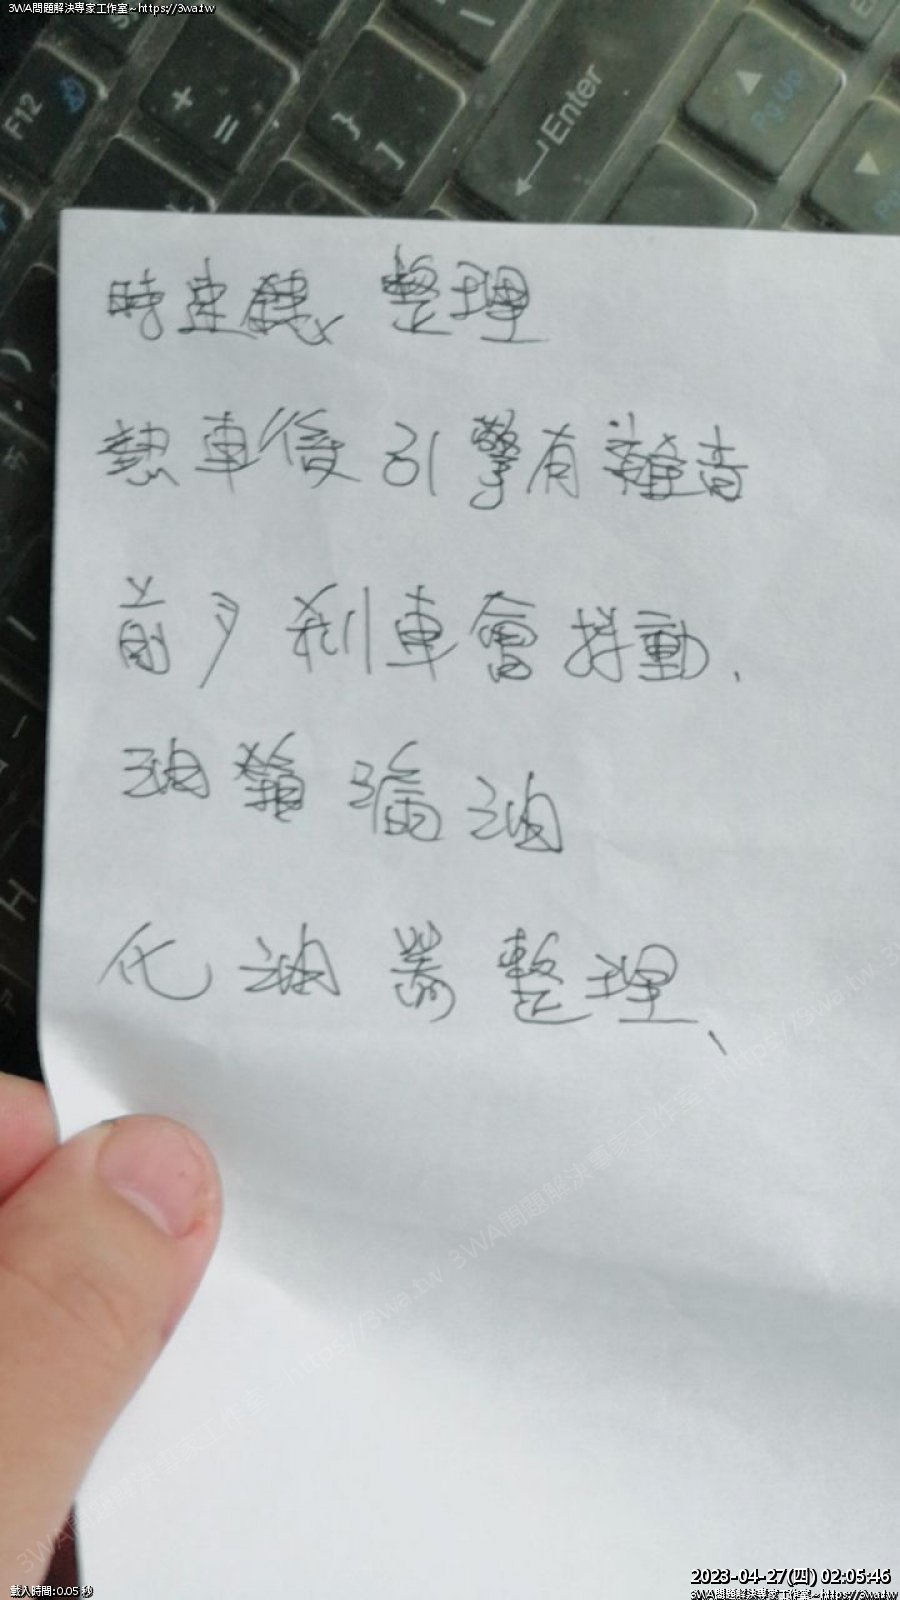 3WA問題解決專家工作室~https://3wa.tw
F12
+
=
}
]
Enter
PgUp
時速錶 整理
熱車後引擎有雜音
前 剎車會抖動.
油鎖漏油
化油器整理、
3WA問題解決專家工作室~https://3wa.tw 3WA問題解決專家工作室~https://3wa.tw
載入時間:0.05 秒
2023-04-27(四) 02:05:46
3WA問題解決專家工作室~https://3wa.tw